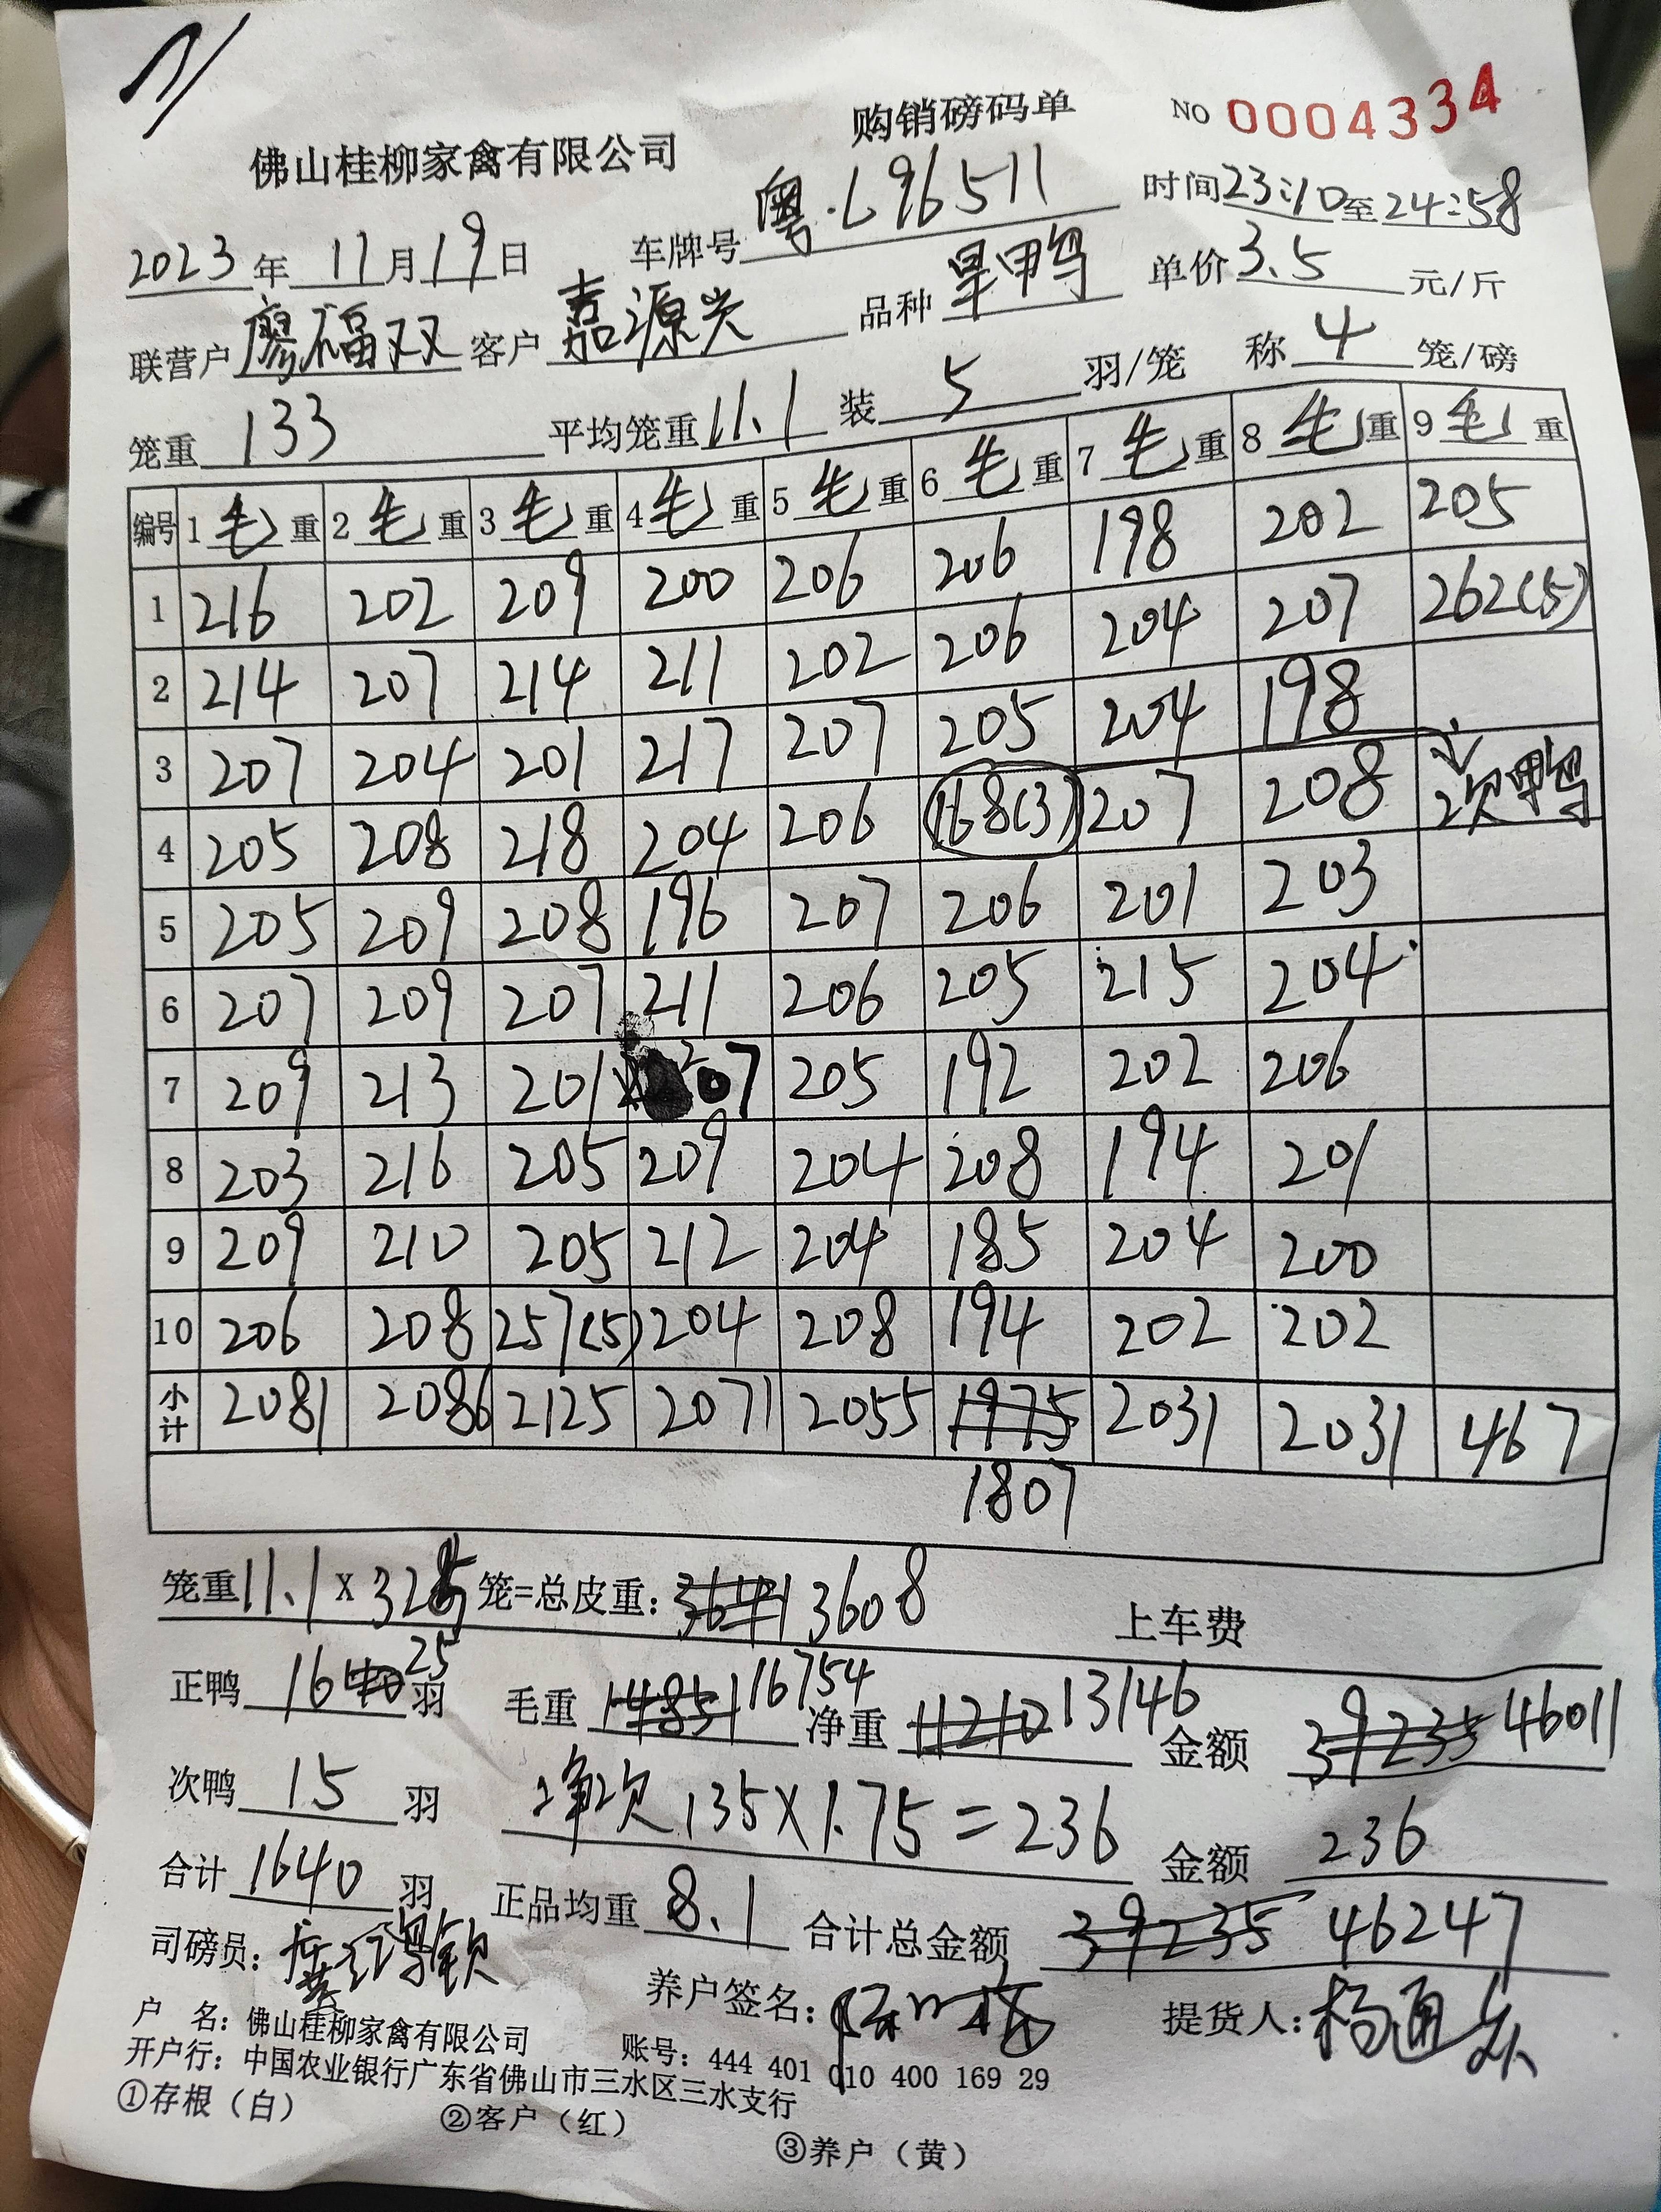 购销磅码单
NO 0004334
佛山桂柳家禽有限公司
2023年11月19日 车牌号粤·L96511 时间23:10至24:58
联营户廖福双 客户嘉源兴 品种旱鸭 单价3.5元/斤
笼重133 平均笼重11.1 装5羽/笼 称4笼/磅
编号 1毛重 2毛重 3毛重 4毛重 5毛重 6毛重 7毛重 8毛重 9毛重
1 216 202 209 200 206 206 198 202 205
2 214 207 214 211 202 206 204 207 262(5)
3 207 204 201 217 207 205 204 198
4 205 208 218 204 206 168(3) 207 208 次鸭
5 205 209 208 196 207 206 201 203
6 207 209 207 211 206 205 215 204
7 209 213 201 207 205 192 202 206
8 203 216 205 209 204 208 194 201
9 209 210 205 212 204 185 204 200
10 206 208 257(5) 204 208 194 202 202
小计 2081 2086 2125 2071 2055 1975 2031 2031 467
1807
笼重11.1×325笼=总皮重: 3608 上车费
正鸭1625羽 毛重14851 16754 净重11210 13146 金额39235 46011
次鸭15羽 净次135×1.75=236 金额236
合计1640羽 正品均重8.1 合计总金额39235 46247
司磅员:
养户签名: 提货人:杨通
户 名: 佛山桂柳家禽有限公司 账号: 444 401 010 400 169 29
开户行: 中国农业银行广东省佛山市三水区三水支行
①存根(白) ②客户(红) ③养户(黄)